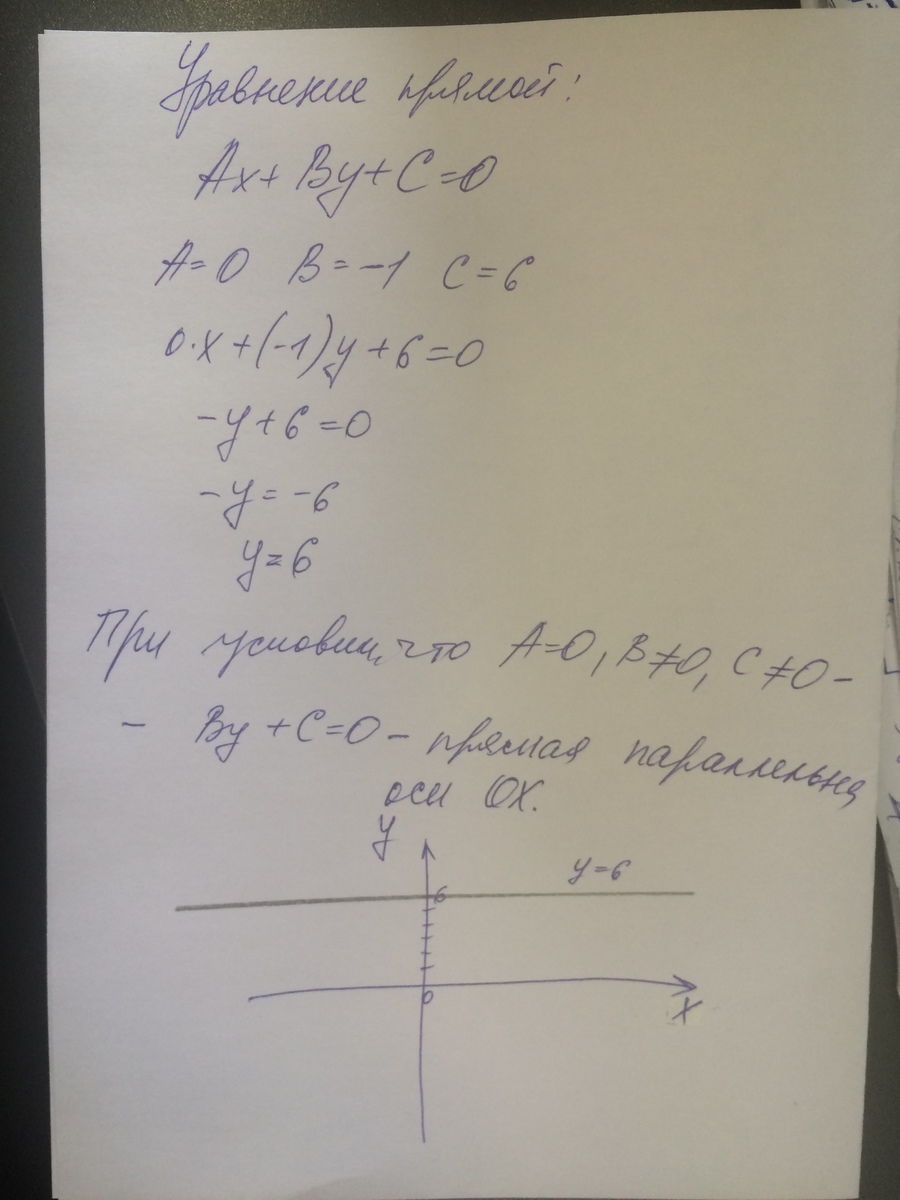 Уравнение прямой:
Ax + By + C = 0
A = 0 B = -1 C = 6
0·x + (-1)y + 6 = 0
-y + 6 = 0
-y = -6
y = 6
При условии, что A=0, B≠0, C≠0 -
- By + C = 0 - прямая параллельна
оси OX.
y
y=6
6
0
x